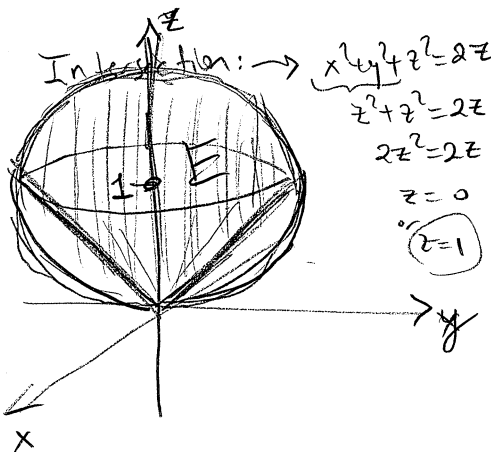 z
Intersection: → x²+y²+z²=2z
z²+z²=2z
2z²=2z
z=0
z=1
1
E
y
x